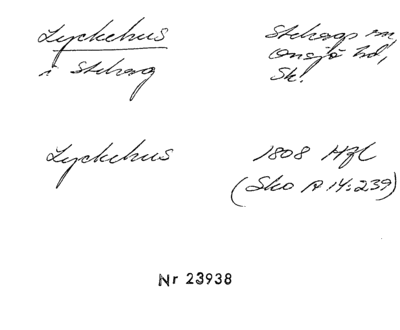 Lyckehus
i Stehag
Stehags sn,
Onsjö hd,
Sk.
Lyckehus
1808 Hfl
(Sko A 14:239)
Nr 23938